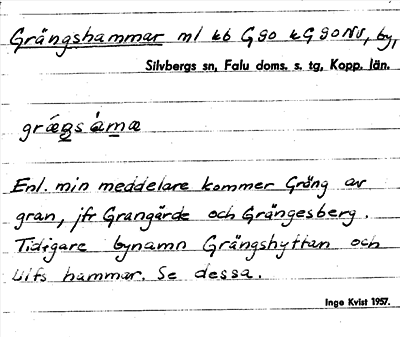 Grängshammar ml kb G 90 kG 90 NV, by,
Silvbergs sn, Falu doms. s. tg, Kopp. län.
Enl. min meddelare kommer Gräng av
gran, jfr Grangärde och Grängesberg.
Tidigare bynamn Grängshyttan och
Ulfs hammar. Se dessa.
Inge Kvist 1957.